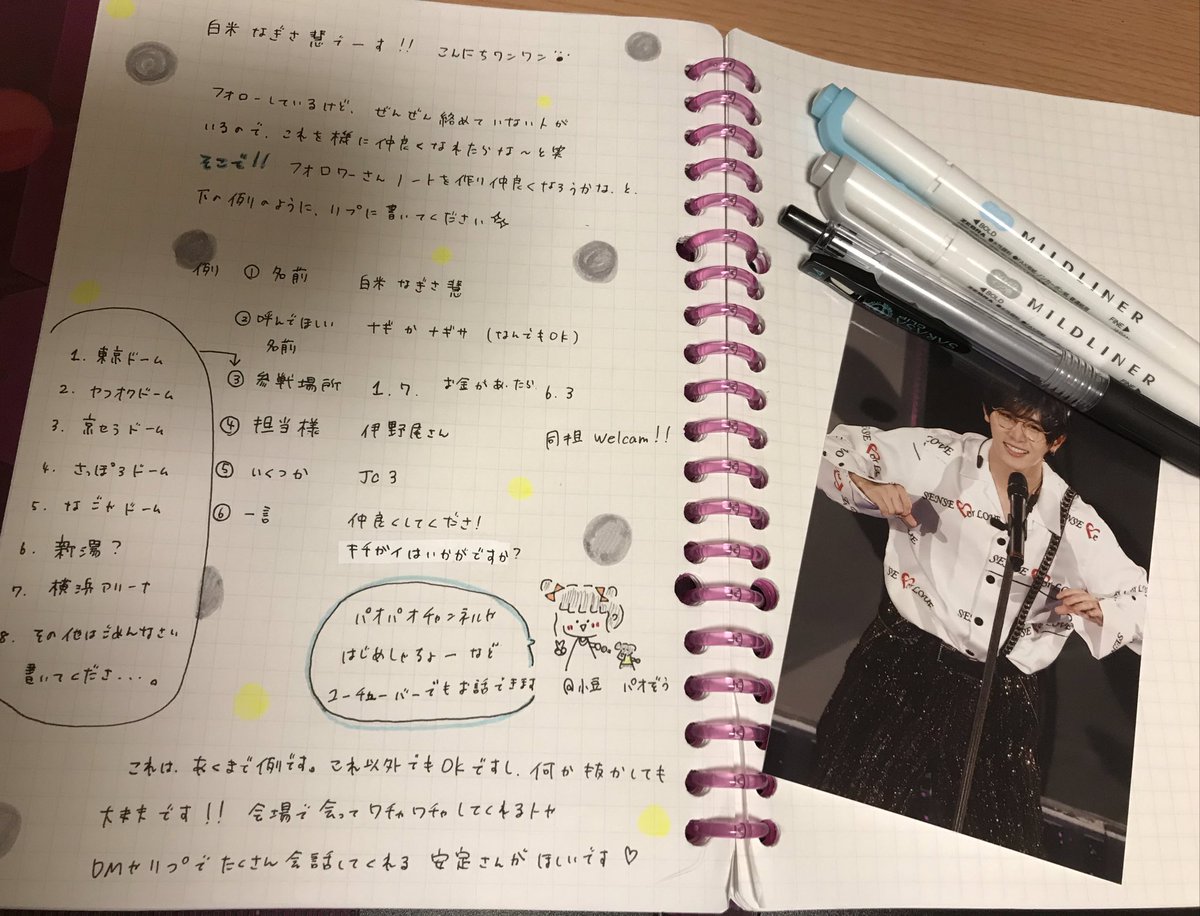 白米 なぎさ 慧でーす!! こんにちワンワン
フォローしているけど、ぜんぜん絡めていない人が
いるので、これを機に仲良くなれたらな〜と実
そこで!! フォロワーさんノートを作り仲良くなろうかな、と、
下の例のように、リプに書いてください☆
例 ① 名前 白米 なぎさ 慧
② 呼んでほしい名前 ナギ か ナギサ (なんでもOK)
③ 参戦場所 1. 7. お金があったら 6. 3
④ 担当様 伊野尾さん 同担 welcam!!
⑤ いくつか JC3
⑥ 一言 仲良くしてくださ!
キチガイはいかがですか?
1. 東京ドーム
2. ヤフオクドーム
3. 京セラドーム
4. さっぽろドーム
5. なごやドーム
6. 新潟?
7. 横浜アリーナ
8. その他はごめんなさい
書いてくださ...。
パオパオチャンネルや
はじめしゃちょーなど
ユーチューバーでもお話できます
@小豆 パオぞう
これは、あくまで例です。これ以外でもOKですし、何か抜かしても
大丈夫です!! 会場で会ってワチャワチャしてくれる人や
DMやリプでたくさん会話してくれる 安定さんがほしいです♡
BOLD
ZEBRA
MILDLINER
FINE
BOLD
ZEBRA
MILDLINER
FINE
SAKURA
LOVE
SENSE or LOVE
SENSE